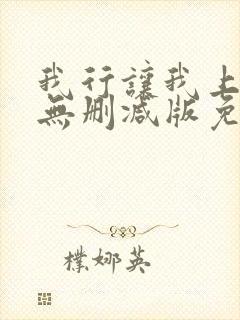 我行讓我上
無刪減版免
樸娜英